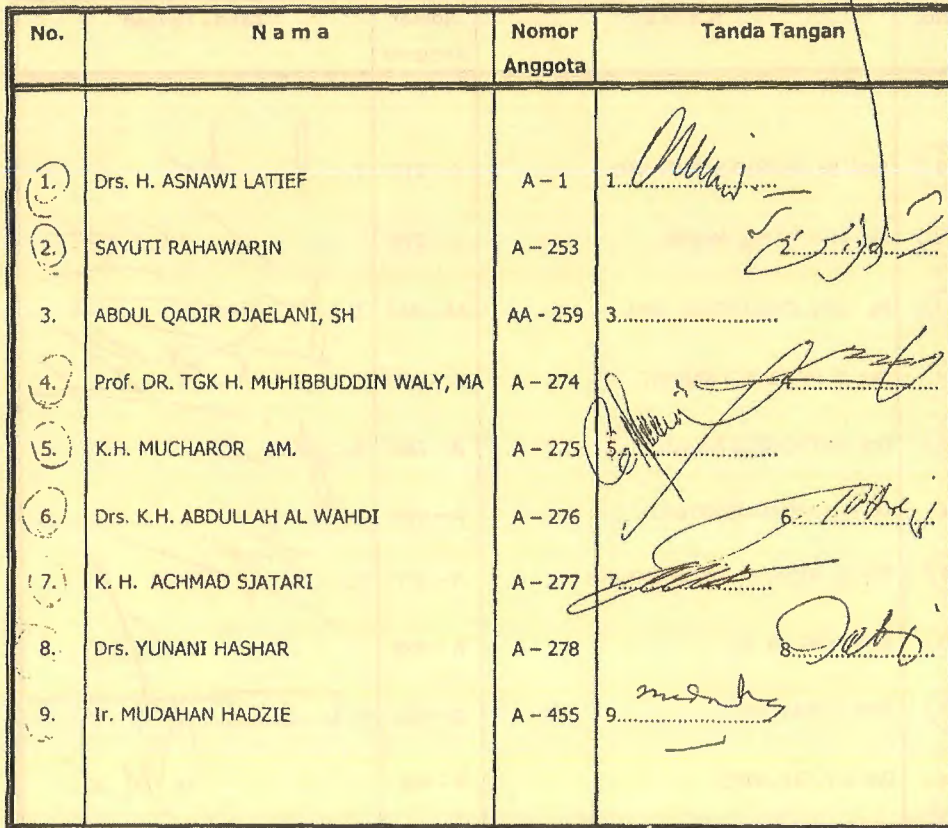 No. N a m a Nomor Anggota Tanda Tangan
1. Drs. H. ASNAWI LATIEF A – 1 1....................
2. SAYUTI RAHAWARIN A – 253 2....................
3. ABDUL QADIR DJAELANI, SH AA - 259 3....................
4. Prof. DR. TGK H. MUHIBBUDDIN WALY, MA A – 274 4....................
5. K.H. MUCHAROR AM. A – 275 5....................
6. Drs. K.H. ABDULLAH AL WAHDI A – 276 6....................
7. K. H. ACHMAD SJATARI A – 277 7....................
8. Drs. YUNANI HASHAR A – 278 8....................
9. Ir. MUDAHAN HADZIE A – 455 9....................